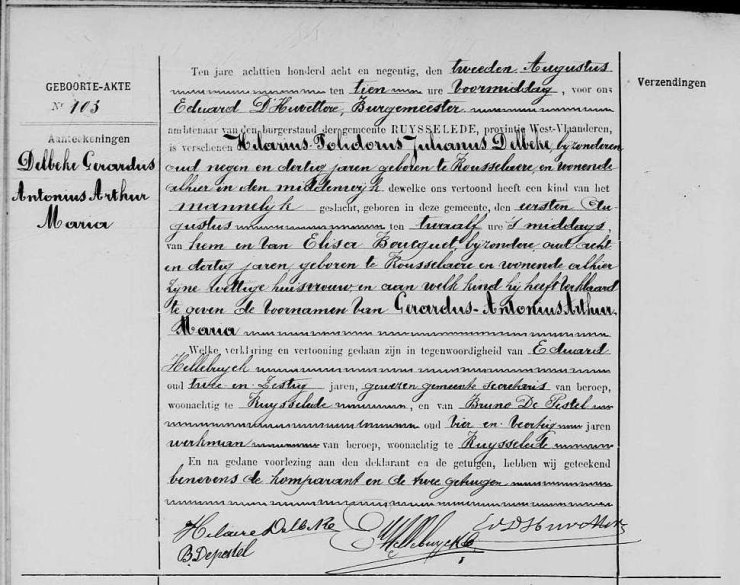 GEBOORTE-AKTE
N° 103
Aanteekeningen
Delbeke Gerardus
Antonius Arthur
Maria
Ten jare achttien honderd acht en negentig, den tweeden Augustus
ten tien ure voormiddag, voor ons
Eduard D'Huvettere, Burgemeester
ambtenaar van den burgerstand der gemeente RUYSSELEDE, provintie West-Vlaanderen,
is verschenen Hilarius-Polidorus Julianus Delbeke, byzonderen
oud negen en dertig jaren geboren te Rousselaere, en wonende
alhier en den middenwyk dewelke ons vertoond heeft een kind van het
mannelyk geslacht, geboren in deze gemeente, den eersten Au-
gustus ten twaalf ure 's middags,
van hem en van Elisa Boucquet, byzondere oud acht
en dertig jaren, geboren te Rousselaere en wonende alhier
zyne wettige huisvrouw en aan welk kind hij heeft verklaard
te geven de voornamen van Gerardus-Antonius Arthur
Maria
Welke verklaring en vertooning gedaan zijn in tegenwoordigheid van Eduard
Hellebuyck
oud twee en zestig jaren, gewezen gemeente secretaris van beroep,
woonachtig te Ruysselede, en van Bruno De Pestel
oud vier en veertig jaren
werkman van beroep, woonachtig te Ruysselede
En na gedane voorlezing aan den deklarant en de getuigen, hebben wij geteekend
benevens de komparant en de twee getuigen
Hilaire Delbeke E Hellebuyck Ed D'Huvettere
B. Depestel
Verzendingen